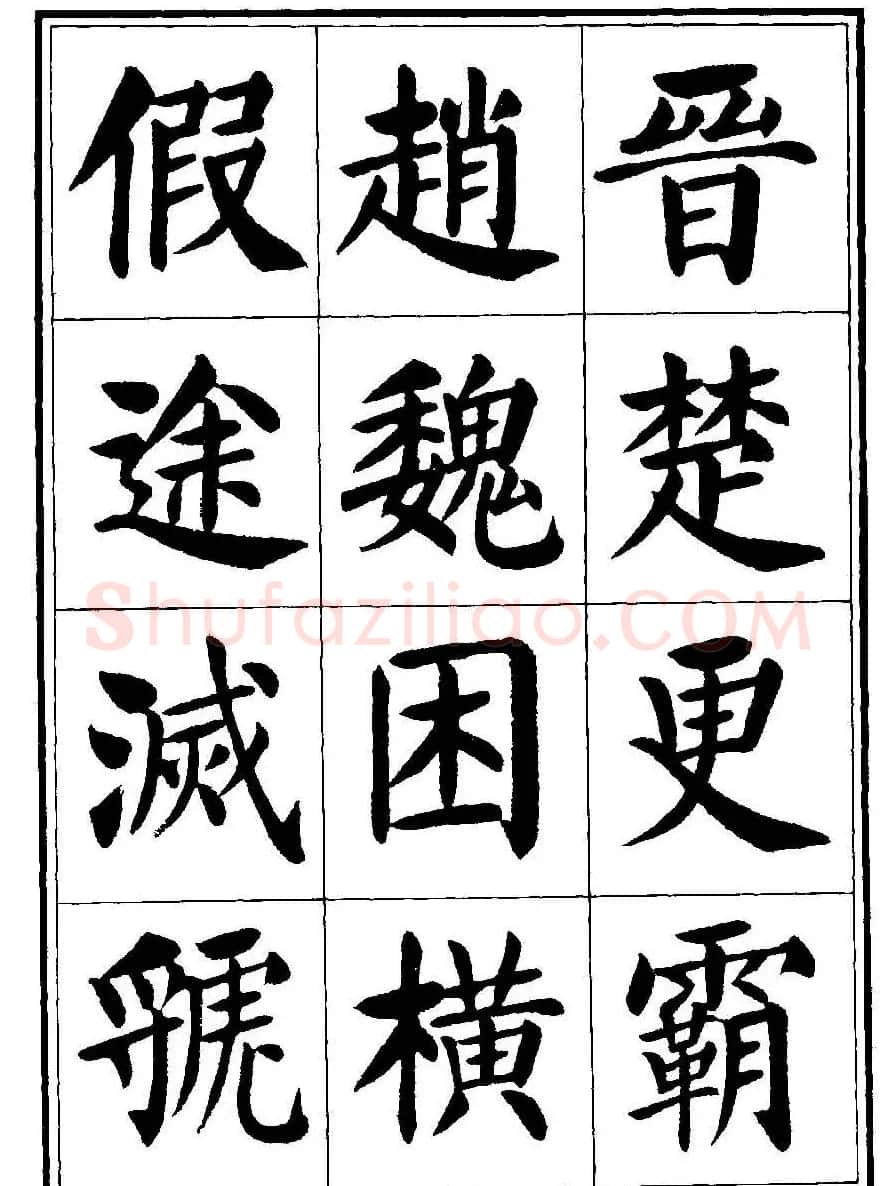 晉楚更霸
趙魏困橫
假途滅虢
Shufaziliao.COM